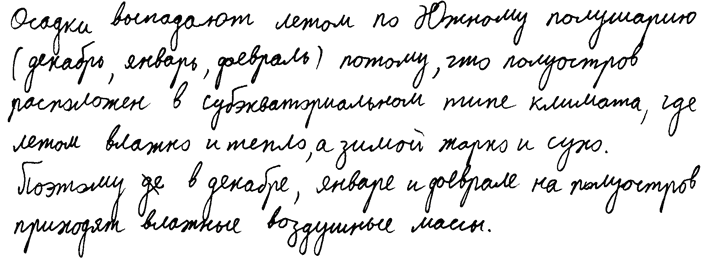 Осадки воспадают летом по Южному полушарию
(декабрь, январь, февраль) потому, что полуостров
расположен в субэкваториальном типе климата, где
летом влажно и тепло, а зимой жарко и сухо.
Поэтому в декабре, январе и феврале на полуостров
приходят влажные воздушные массы.